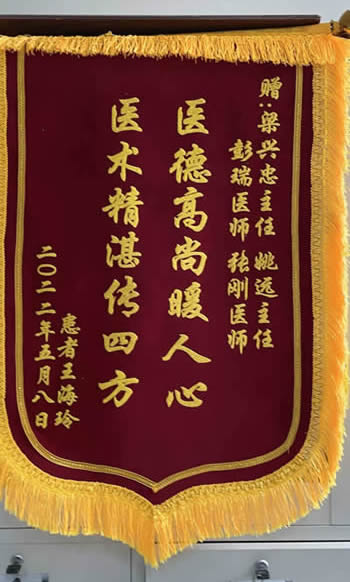 赠:梁兴忠主任 姚远主任
彭瑞医师 张刚医师
医德高尚暖人心
医术精湛传四方
患者王海玲
二〇二二年五月八日